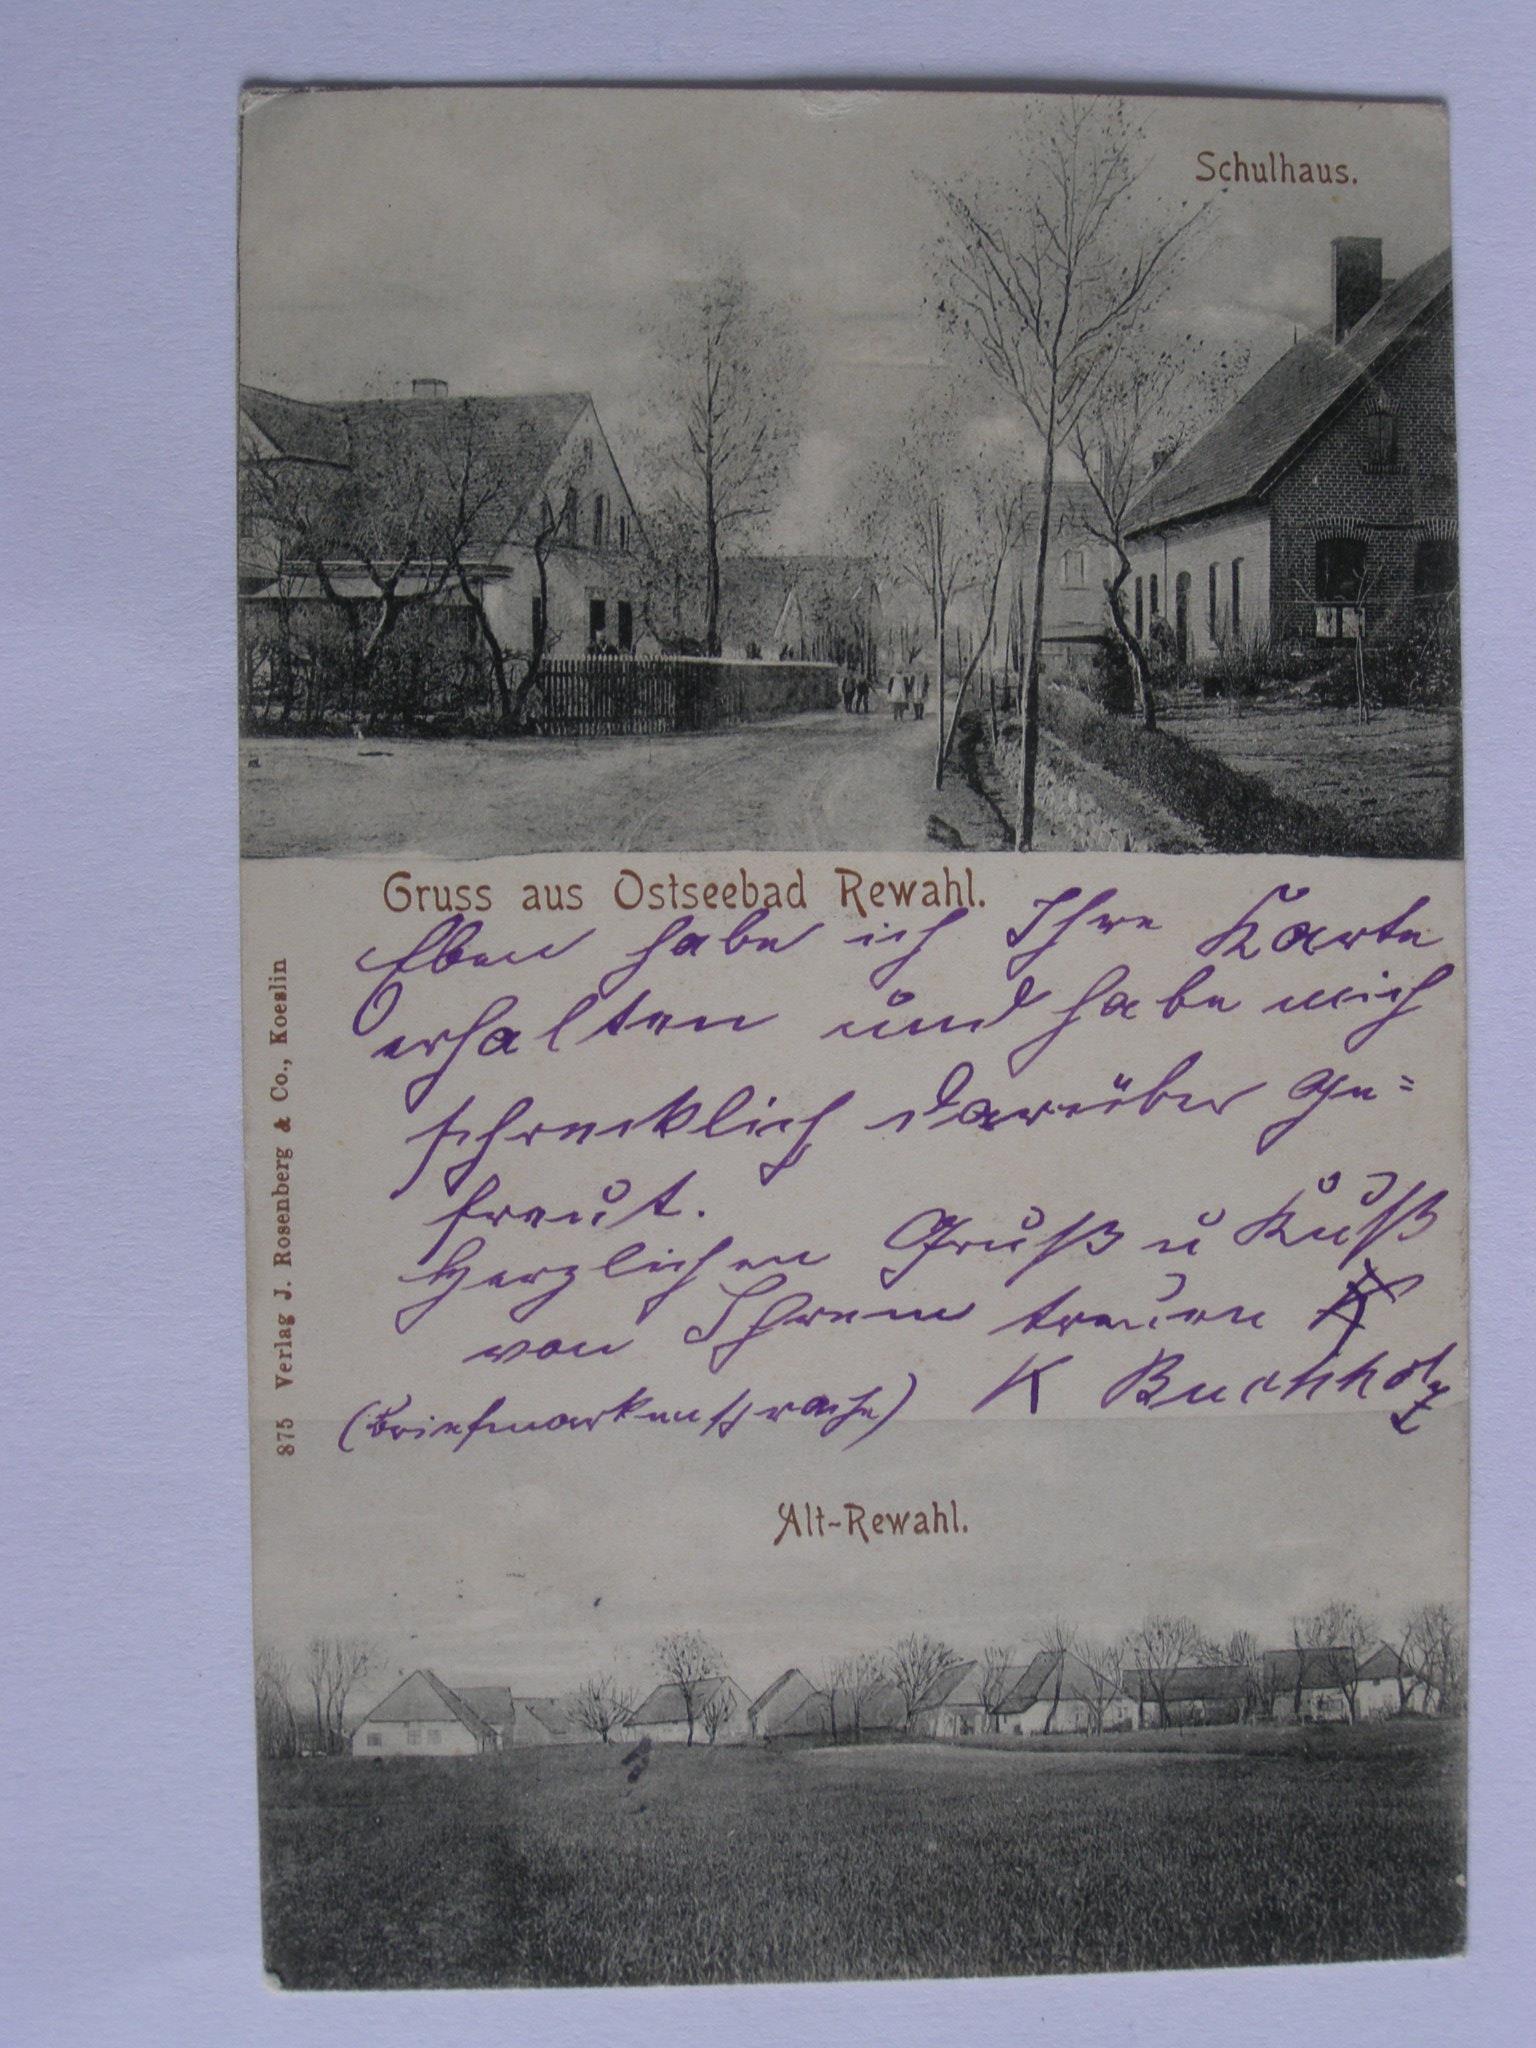 Schulhaus.
Gruss aus Ostseebad Rewahl.
Eben habe ich Ihre Karte
erhalten und habe mich
schrecklich darüber ge=
freut.
Herzlichen Gruß u Kuß
von Ihrem treuen K
(Briefmarkensprache) K Buchholz
875 Verlag J. Rosenberg & Co., Koeslin
Alt-Rewahl.